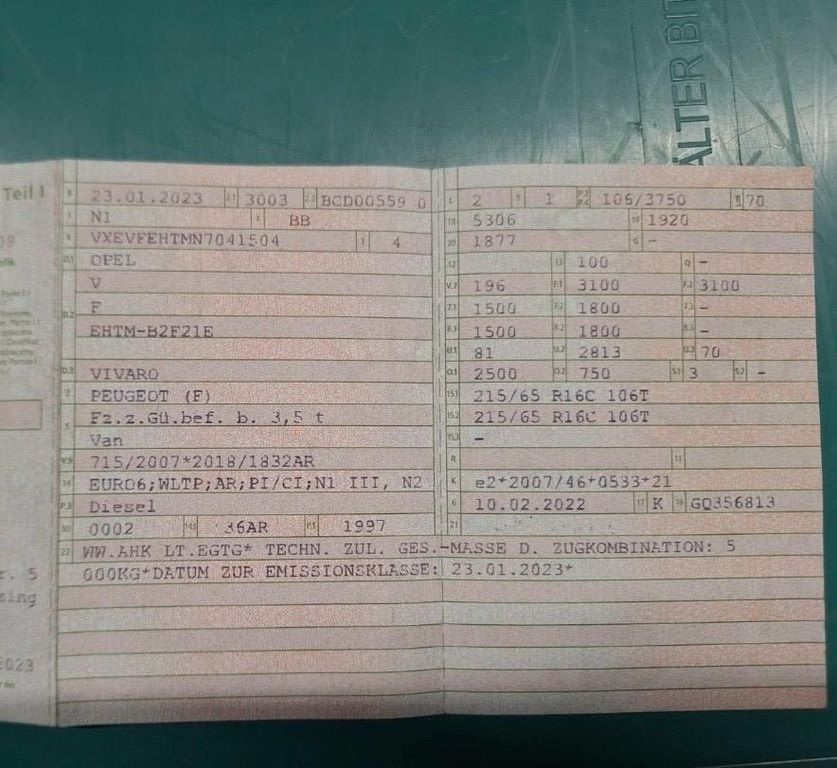 ÄLTER BIT
Teil I
B 23.01.2023 2.1 3003 2.2 BCD00559 0
J N1 4 BB
E VXEVFEHTMN7041504 3 4
D.1 OPEL
V
D.2 F
EHTM-B2F21E
D.3 VIVARO
2 PEUGEOT (F)
5 Fz.z.Gü.bef. b. 3,5 t
Van
V.9 715/2007*2018/1832AR
14 EURO6;WLTP;AR;PI/CI;N1 III, N2
P.3 Diesel
10 0002 14.1 36AR P.1 1997
22 WW.AHK LT.EGTG* TECHN. ZUL. GES.-MASSE D. ZUGKOMBINATION: 5
000KG*DATUM ZUR EMISSIONSKLASSE: 23.01.2023*
L 2 9 1 P.2 P.4 106/3750 T 170
18 5306 19 1920
20 1877 G -
12 13 100 Q -
V.7 196 F.1 3100 F.2 3100
7.1 1500 7.2 1800 7.3 -
8.1 1500 8.2 1800 8.3 -
U.1 81 U.2 2813 U.3 70
O.1 2500 O.2 750 S.1 3 S.2 -
15.1 215/65 R16C 106T
15.2 215/65 R16C 106T
15.3 -
R 11
K e2*2007/46*0533*21
6 10.02.2022 17 K 16 GQ356813
21
r. 5
sing
2023